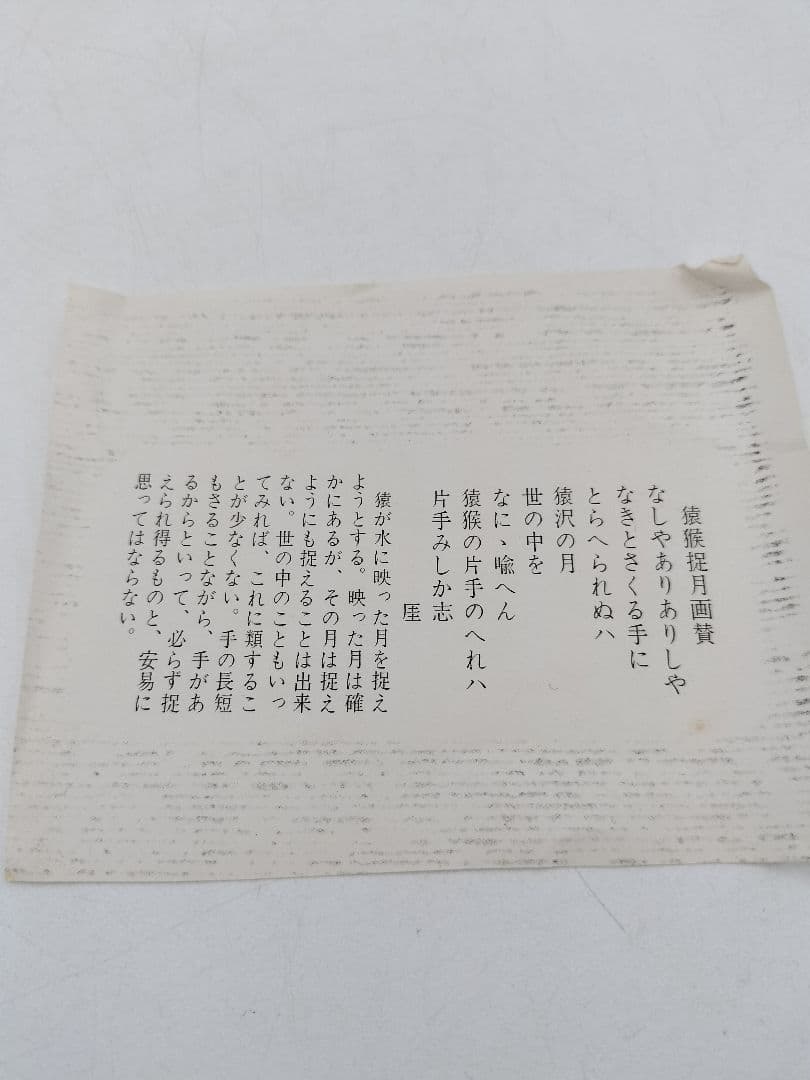 猿猴捉月画賛
なしやありありしや
なきとさくる手に
とらへられぬハ
猿沢の月
世の中を
なにゝ喩へん
猿猴の片手のへれハ
片手みしか志
厓
猿が水に映った月を捉え
ようとする。映った月は確
かにあるが、その月は捉え
ようにも捉えることは出来
ない。世の中のこともいっ
てみれば、これに類するこ
とが少なくない。手の長短
もさることながら、手があ
るからといって、必らず捉
えられ得るものと、安易に
思ってはならない。